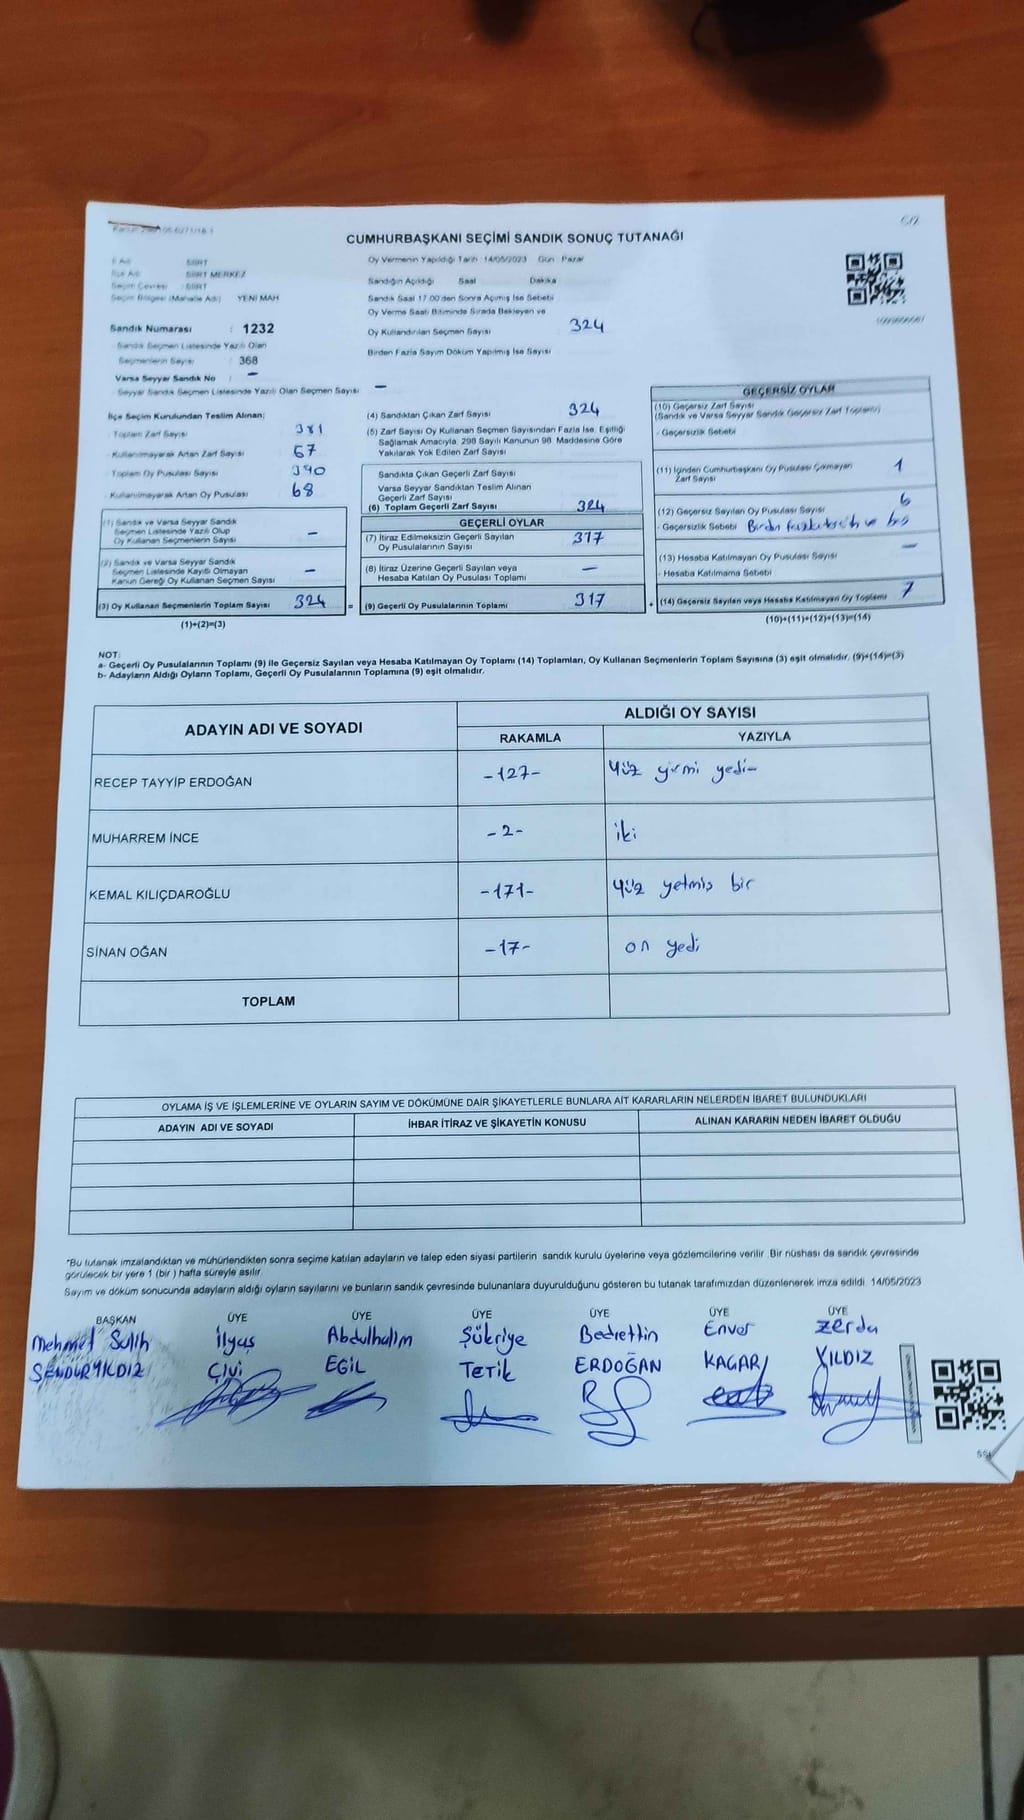 CUMHURBAŞKANI SEÇİMİ SANDIK SONUÇ TUTANAĞI
İl Adı SİİRT
İlçe Adı SİİRT MERKEZ
Seçim Çevresi : SİİRT
Seçim Bölgesi (Mahalle Adı) YENİ MAH
Sandık Numarası : 1232
Sandık Seçmen Listesinde Yazılı Olan
Seçmenlerin Sayısı : 368
Varsa Seyyar Sandık No : –
Seyyar Sandık Seçmen Listesinde Yazılı Olan Seçmen Sayısı –
Oy Vermenin Yapıldığı Tarih 14/05/2023 Gün Pazar
Sandığın Açıldığı Saat Dakika
Sandık Saat 17.00'den Sonra Açılmış İse Sebebi
Oy Verme Saati Bitiminde Sırada Bekleyen ve
Oy Kullandırılan Seçmen Sayısı 324
Birden Fazla Sayım Döküm Yapılmış İse Sayısı
İlçe Seçim Kurulundan Teslim Alınan;
Toplam Zarf Sayısı 381
Kullanılmayarak Artan Zarf Sayısı 67
Toplam Oy Pusulası Sayısı 390
Kullanılmayarak Artan Oy Pusulası 68
(1) Sandık ve Varsa Seyyar Sandık
Seçmen Listesinde Yazılı Olup
Oy Kullanan Seçmenlerin Sayısı –
(2) Sandık ve Varsa Seyyar Sandık
Seçmen Listesinde Kayıtlı Olmayan
Kanun Gereği Oy Kullanan Seçmen Sayısı –
(3) Oy Kullanan Seçmenlerin Toplam Sayısı 324 =
(1)+(2)=(3)
(4) Sandıktan Çıkan Zarf Sayısı 324
(5) Zarf Sayısı Oy Kullanan Seçmen Sayısından Fazla İse, Eşitliği
Sağlamak Amacıyla, 298 Sayılı Kanunun 98. Maddesine Göre
Yakılarak Yok Edilen Zarf Sayısı
Sandıkta Çıkan Geçerli Zarf Sayısı
Varsa Seyyar Sandıktan Teslim Alınan
Geçerli Zarf Sayısı
(6) Toplam Geçerli Zarf Sayısı 324
GEÇERLİ OYLAR
(7) İtiraz Edilmeksizin Geçerli Sayılan
Oy Pusulalarının Sayısı 317
(8) İtiraz Üzerine Geçerli Sayılan veya
Hesaba Katılan Oy Pusulası Toplamı –
(9) Geçerli Oy Pusulalarının Toplamı 317 +
GEÇERSİZ OYLAR
(10) Geçersiz Zarf Sayısı
(Sandık ve Varsa Seyyar Sandık Geçersiz Zarf Toplamı)
- Geçersizlik Sebebi
(11) İçinden Cumhurbaşkanı Oy Pusulası Çıkmayan
Zarf Sayısı 1
(12) Geçersiz Sayılan Oy Pusulası Sayısı 6
- Geçersizlik Sebebi Birden ve
(13) Hesaba Katılmayan Oy Pusulası Sayısı –
- Hesaba Katılmama Sebebi
(14) Geçersiz Sayılan veya Hesaba Katılmayan Oy Toplamı 7
(10)+(11)+(12)+(13)=(14)
NOT:
a- Geçerli Oy Pusulalarının Toplamı (9) ile Geçersiz Sayılan veya Hesaba Katılmayan Oy Toplamı (14) Toplamları, Oy Kullanan Seçmenlerin Toplam Sayısına (3) eşit olmalıdır. (9)+(14)=(3)
b- Adayların Aldığı Oyların Toplamı, Geçerli Oy Pusulalarının Toplamına (9) eşit olmalıdır.
ADAYIN ADI VE SOYADI
ALDIĞI OY SAYISI
RAKAMLA YAZIYLA
RECEP TAYYİP ERDOĞAN -127- Yüz yirmi yedi-
MUHARREM İNCE -2- iki
KEMAL KILIÇDAROĞLU -171- Yüz yetmis bir
SİNAN OĞAN -17- on yedi
TOPLAM
OYLAMA İŞ VE İŞLEMLERİNE VE OYLARIN SAYIM VE DÖKÜMÜNE DAİR ŞİKAYETLERLE BUNLARA AİT KARARLARIN NELERDEN İBARET BULUNDUKLARI
ADAYIN ADI VE SOYADI İHBAR İTİRAZ VE ŞİKAYETİN KONUSU ALINAN KARARIN NEDEN İBARET OLDUĞU
"Bu tutanak imzalandıktan ve mühürlendikten sonra seçime katılan adayların ve talep eden siyasi partilerin sandık kurulu üyelerine veya gözlemcilerine verilir .Bir nüshası da sandık çevresinde
görülecek bir yere 1 (bir ) hafta süreyle asılır.
Sayım ve döküm sonucunda adayların aldığı oyların sayılarını ve bunların sandık çevresinde bulunanlara duyurulduğunu gösteren bu tutanak tarafımızdan düzenlenerek imza edildi 14/05/2023
BAŞKAN ÜYE ÜYE ÜYE ÜYE ÜYE ÜYE
Mehmet Salih İlyas Abdulhalim Şükriye Bedrettin Enver Zerda
ŞENDUR YILDIZ Çivi EGİL Tetik ERDOĞAN KAÇAR YILDIZ